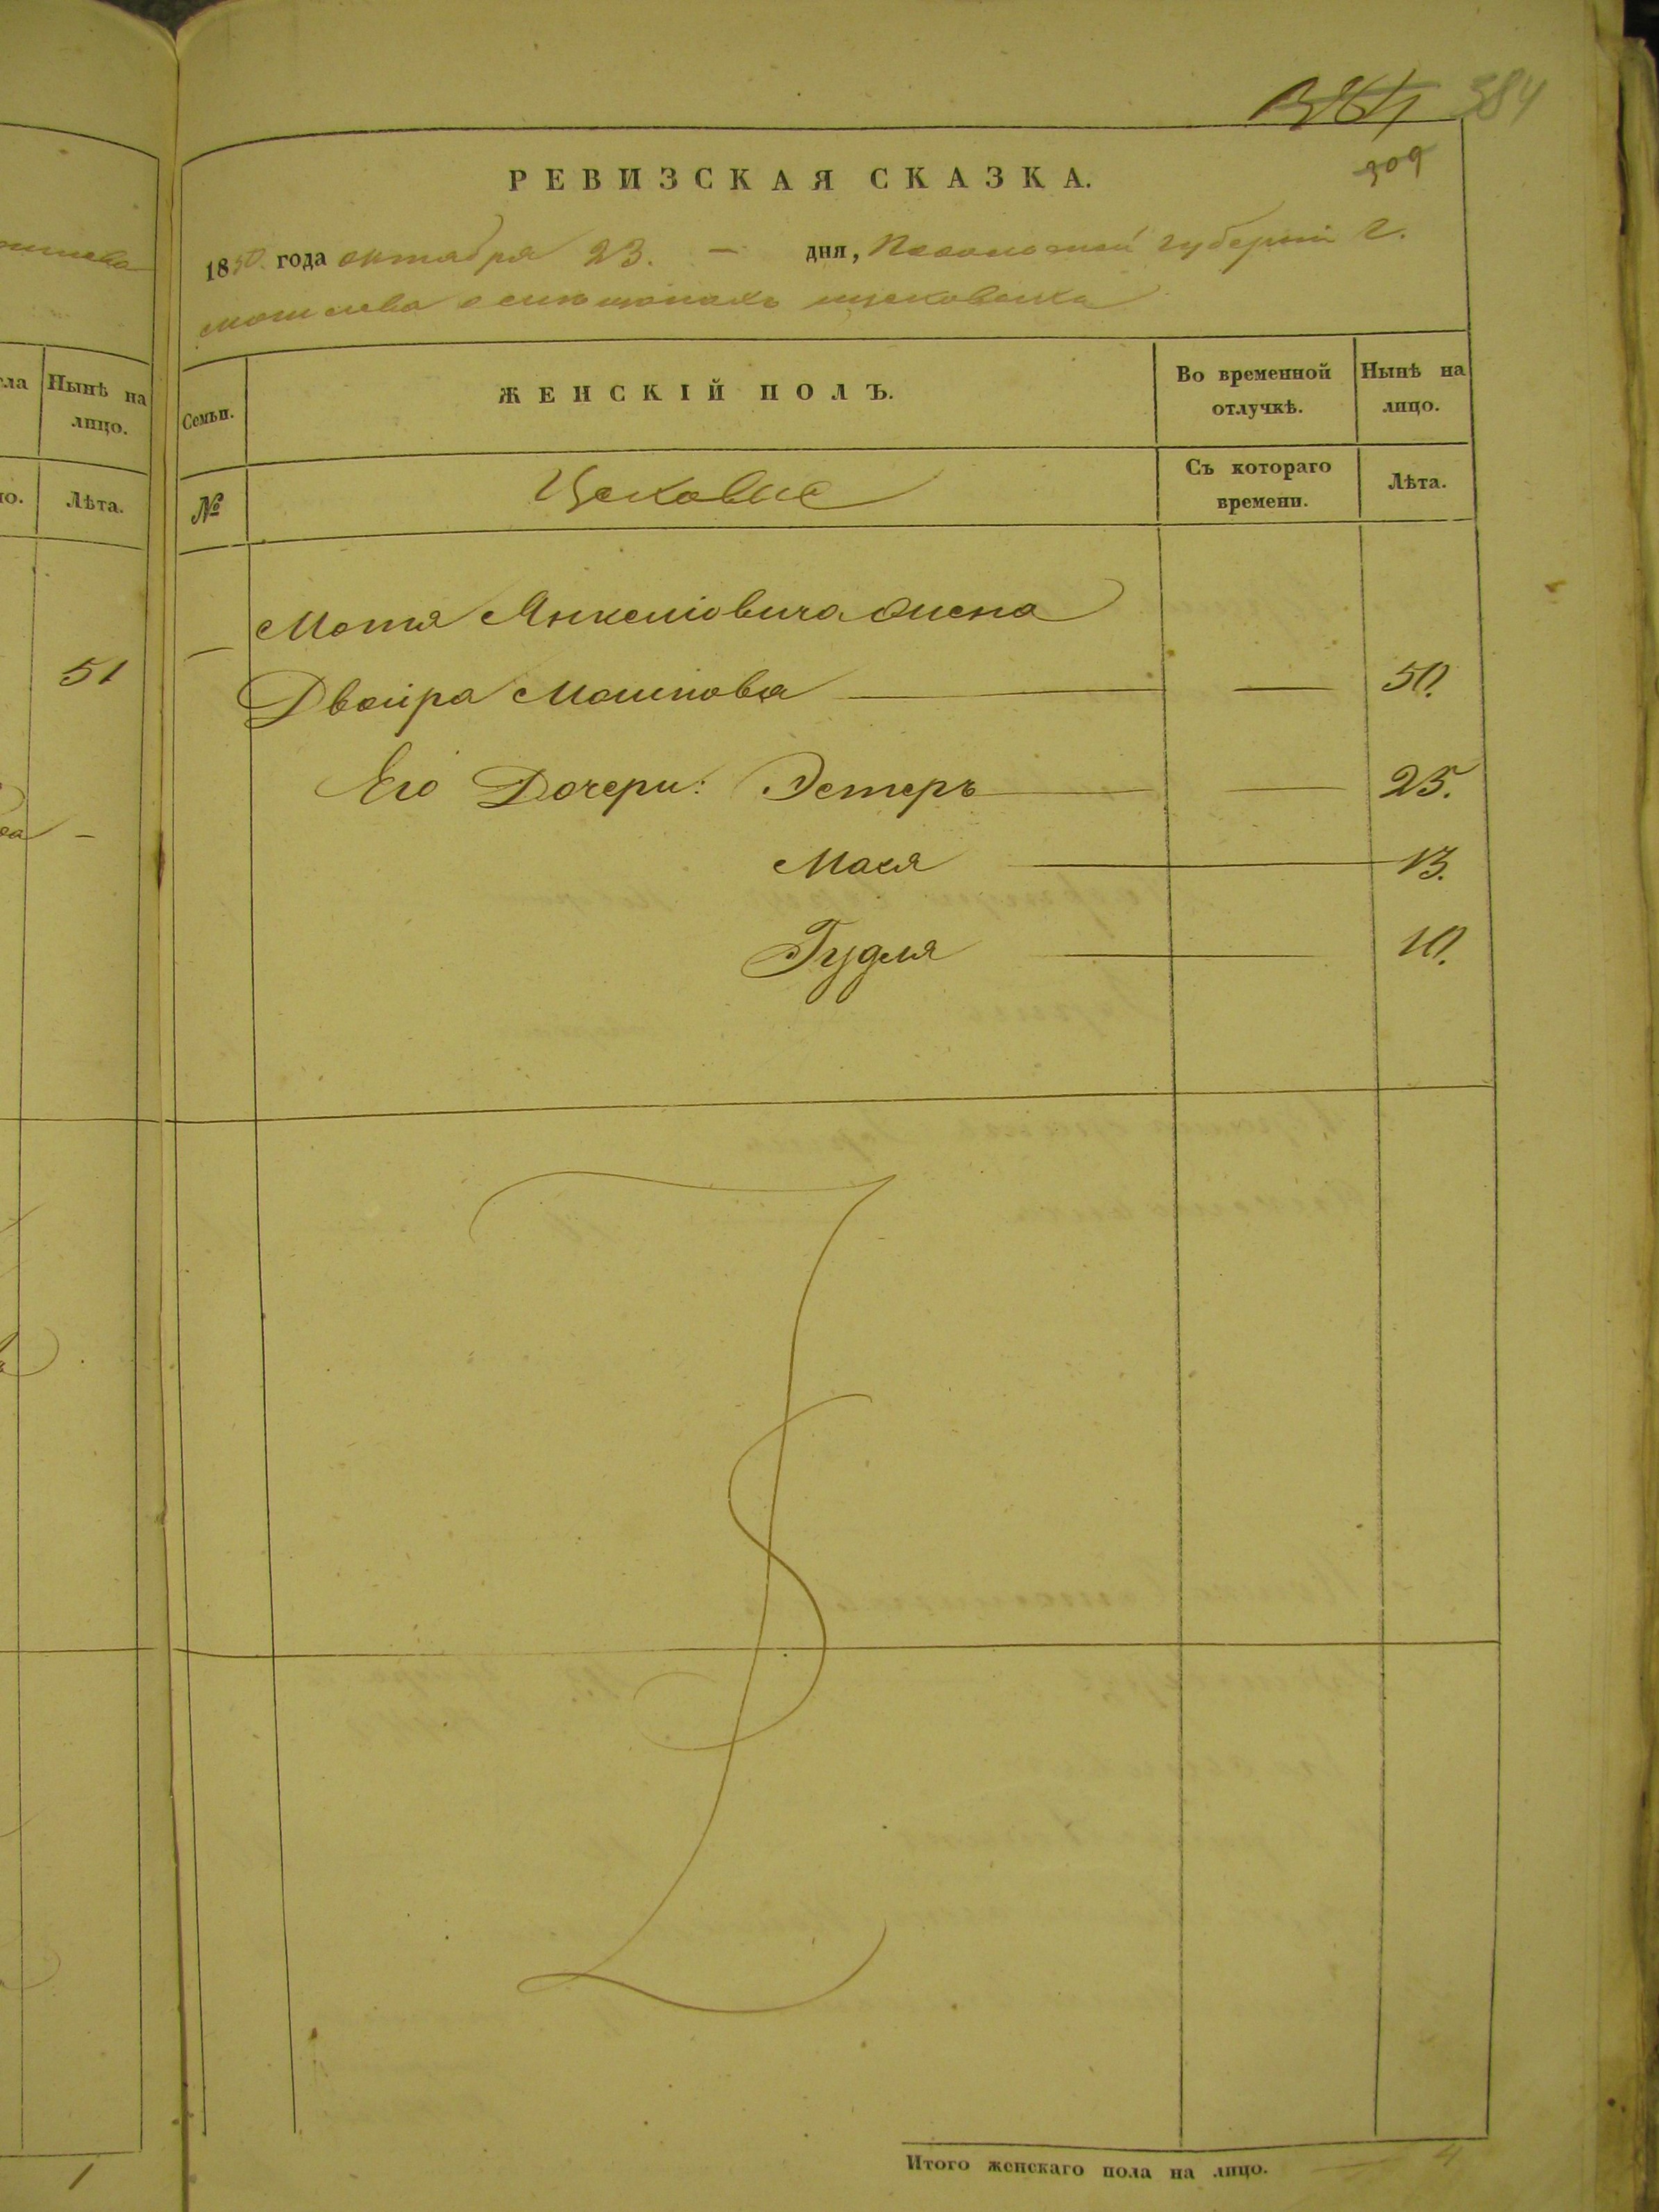 384
384
309
РЕВИЗСКАЯ СКАЗКА.
1850 года октября 23. — дня, Подольской губернии г.
могилева о мещанахъ цеховыхъ
Семьи. ЖЕНСКІЙ ПОЛЪ. Во временной отлучкѣ. Нынѣ на лицо.
№ Цеховые Съ котораго времени. Лѣта.
Мотя Янкеліовича жена
Двойра Мошкова — — 50.
Его Дочери: Эстеръ — — 25.
Мася — 13.
Гудля — 10.
Итого женскаго пола на лицо. — 4
Нынѣ на лицо.
Лѣта.
51
1